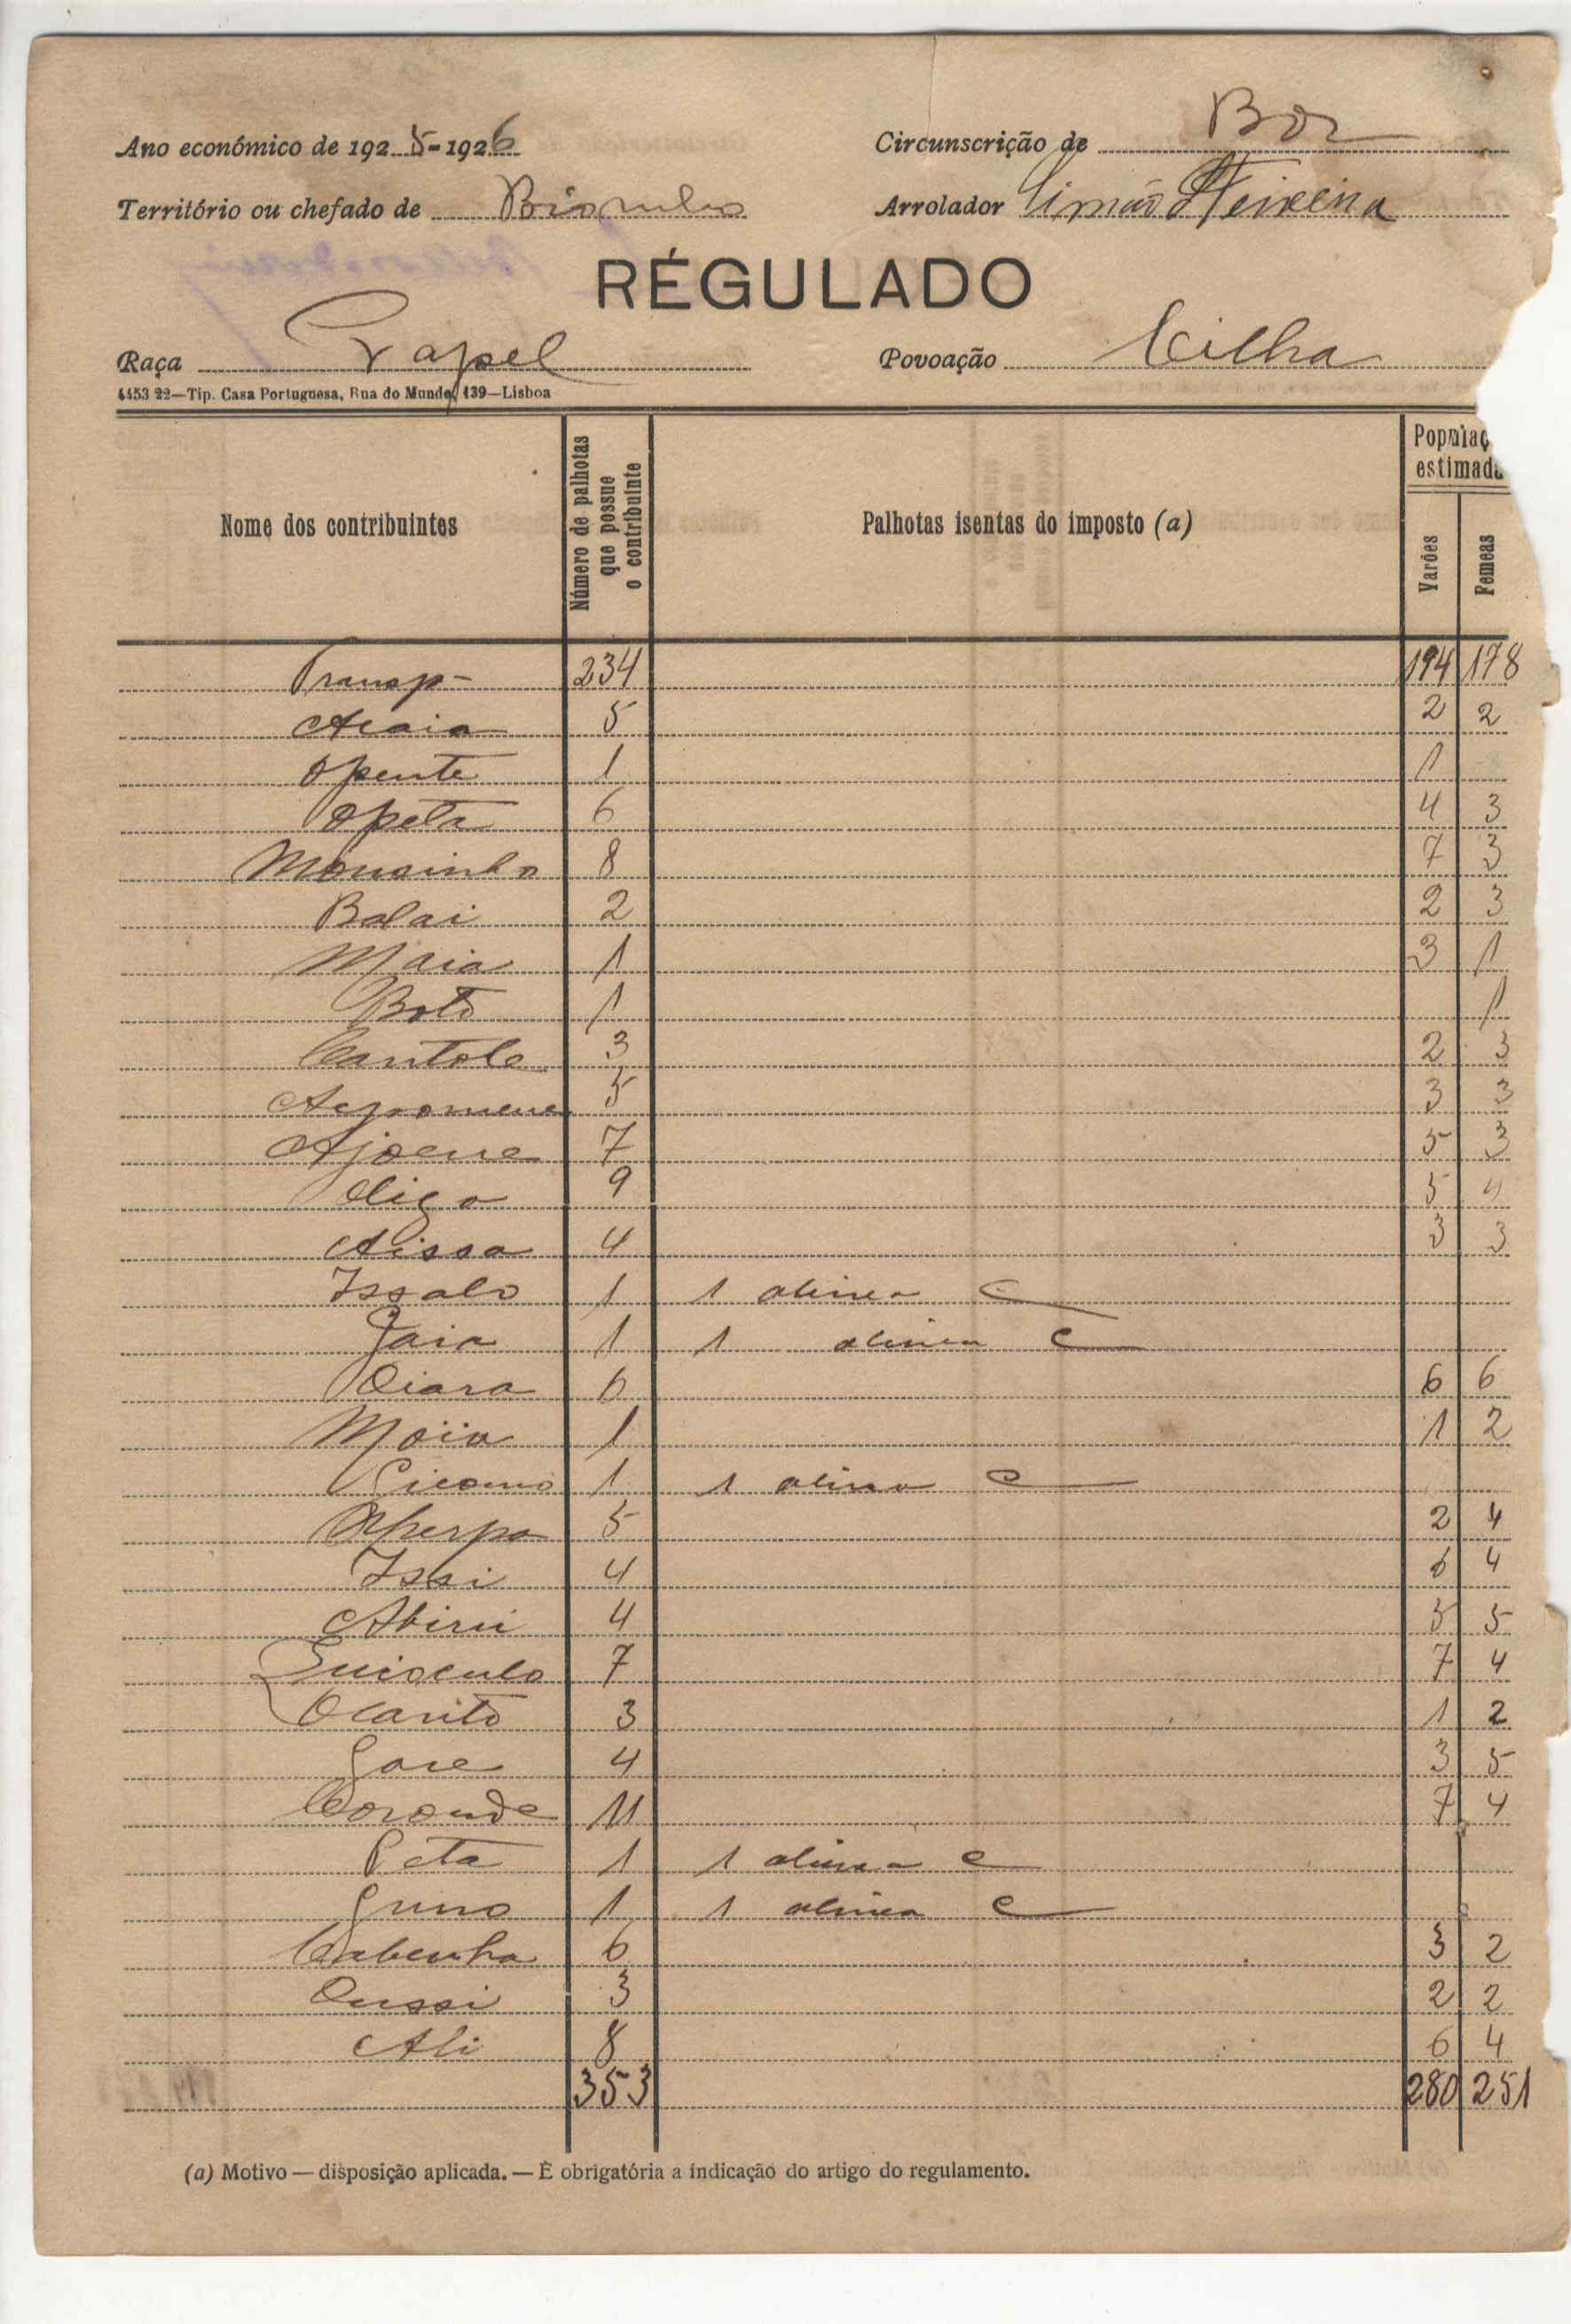 Ano económico de 1925-1926 Circunscrição de Bor
Território ou chefado de Arrolador Simão Teixeira
RÉGULADO
Raça Papel Povoação Cilha
4453 22—Tip. Casa Portuguesa, Rua do Mundo, 139—Lisboa
Nome dos contribuintes Número de palhotas que possue o contribuinte Palhotas isentas do imposto (a) Populaç estimada Varões Femeas
Transp- 234 194 178
Acaia 5 2 2
Opente 1 1
Opeta 6 4 3
Mousinho 8 7 3
Balai 2 2 3
Maia 1 3 1
Botó 1 1
Cantole 3 2 3
5 3 3
Ajoene 7 5 3
9 5 4
Aissa 4 3 3
Issalo 1 1 alinea c
Jaia 1 1 alinea c
Diara 6 6 6
Maia 1 1 2
1 1 alinea c
5 2 4
Issi 4 6 4
4 5 5
7 7 4
Ocanto 3 1 2
4 3 5
Coronde 11 7 4
Peta 1 1 alinea c
1 1 alinea c
Cabenha 6 3 2
Cussi 3 2 2
Ali 8 6 4
353 280 251
(a) Motivo — disposição aplicada. — É obrigatória a indicação do artigo do regulamento.